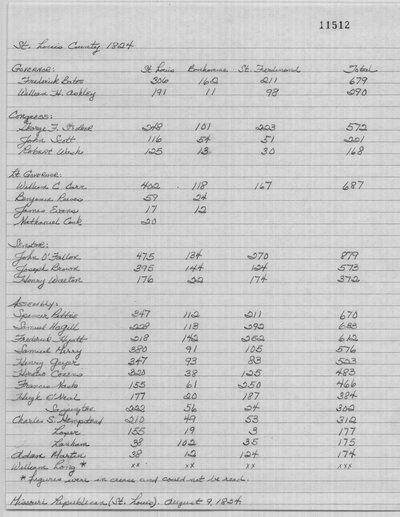 11512
St. Louis County 1824
Governor: St Louis Bonhomme St. Ferdinand Total
Frederick Bates 306 162 211 679
William H. Ashley 191 11 98 290
Congress:
George F. Strother 248 101 223 572
John Scott 116 54 51 221
Robert Wash 125 13 30 168
Lt. Governor:
William C. Carr 402 118 167 687
Benjamin Reeves 59 24
James Evans 17 12
Nathaniel Cook 20
Senator:
John O'Fallon 475 134 270 879
Joseph Brown 395 144 124 573
Henry Walton 176 22 174 372
Assembly:
Spencer Pettis 347 112 211 670
Samuel Magill 228 113 292 633
Frederick Hyatt 218 142 252 612
Samuel Perry 380 91 105 576
Henry Geyer 347 93 83 523
Horatio Cozens 320 38 125 483
Francis Nash 155 61 250 466
Hugh O'Neal 177 20 187 384
222 56 24 302
Charles S. Hempstead 210 49 53 312
155 19 3 177
Larham 38 102 35 175
Adam Martin 38 12 124 174
William Long * xx xx xx xxx
* figures were in crease and could not be read.
Missouri Republican (St. Louis). August 9, 1824